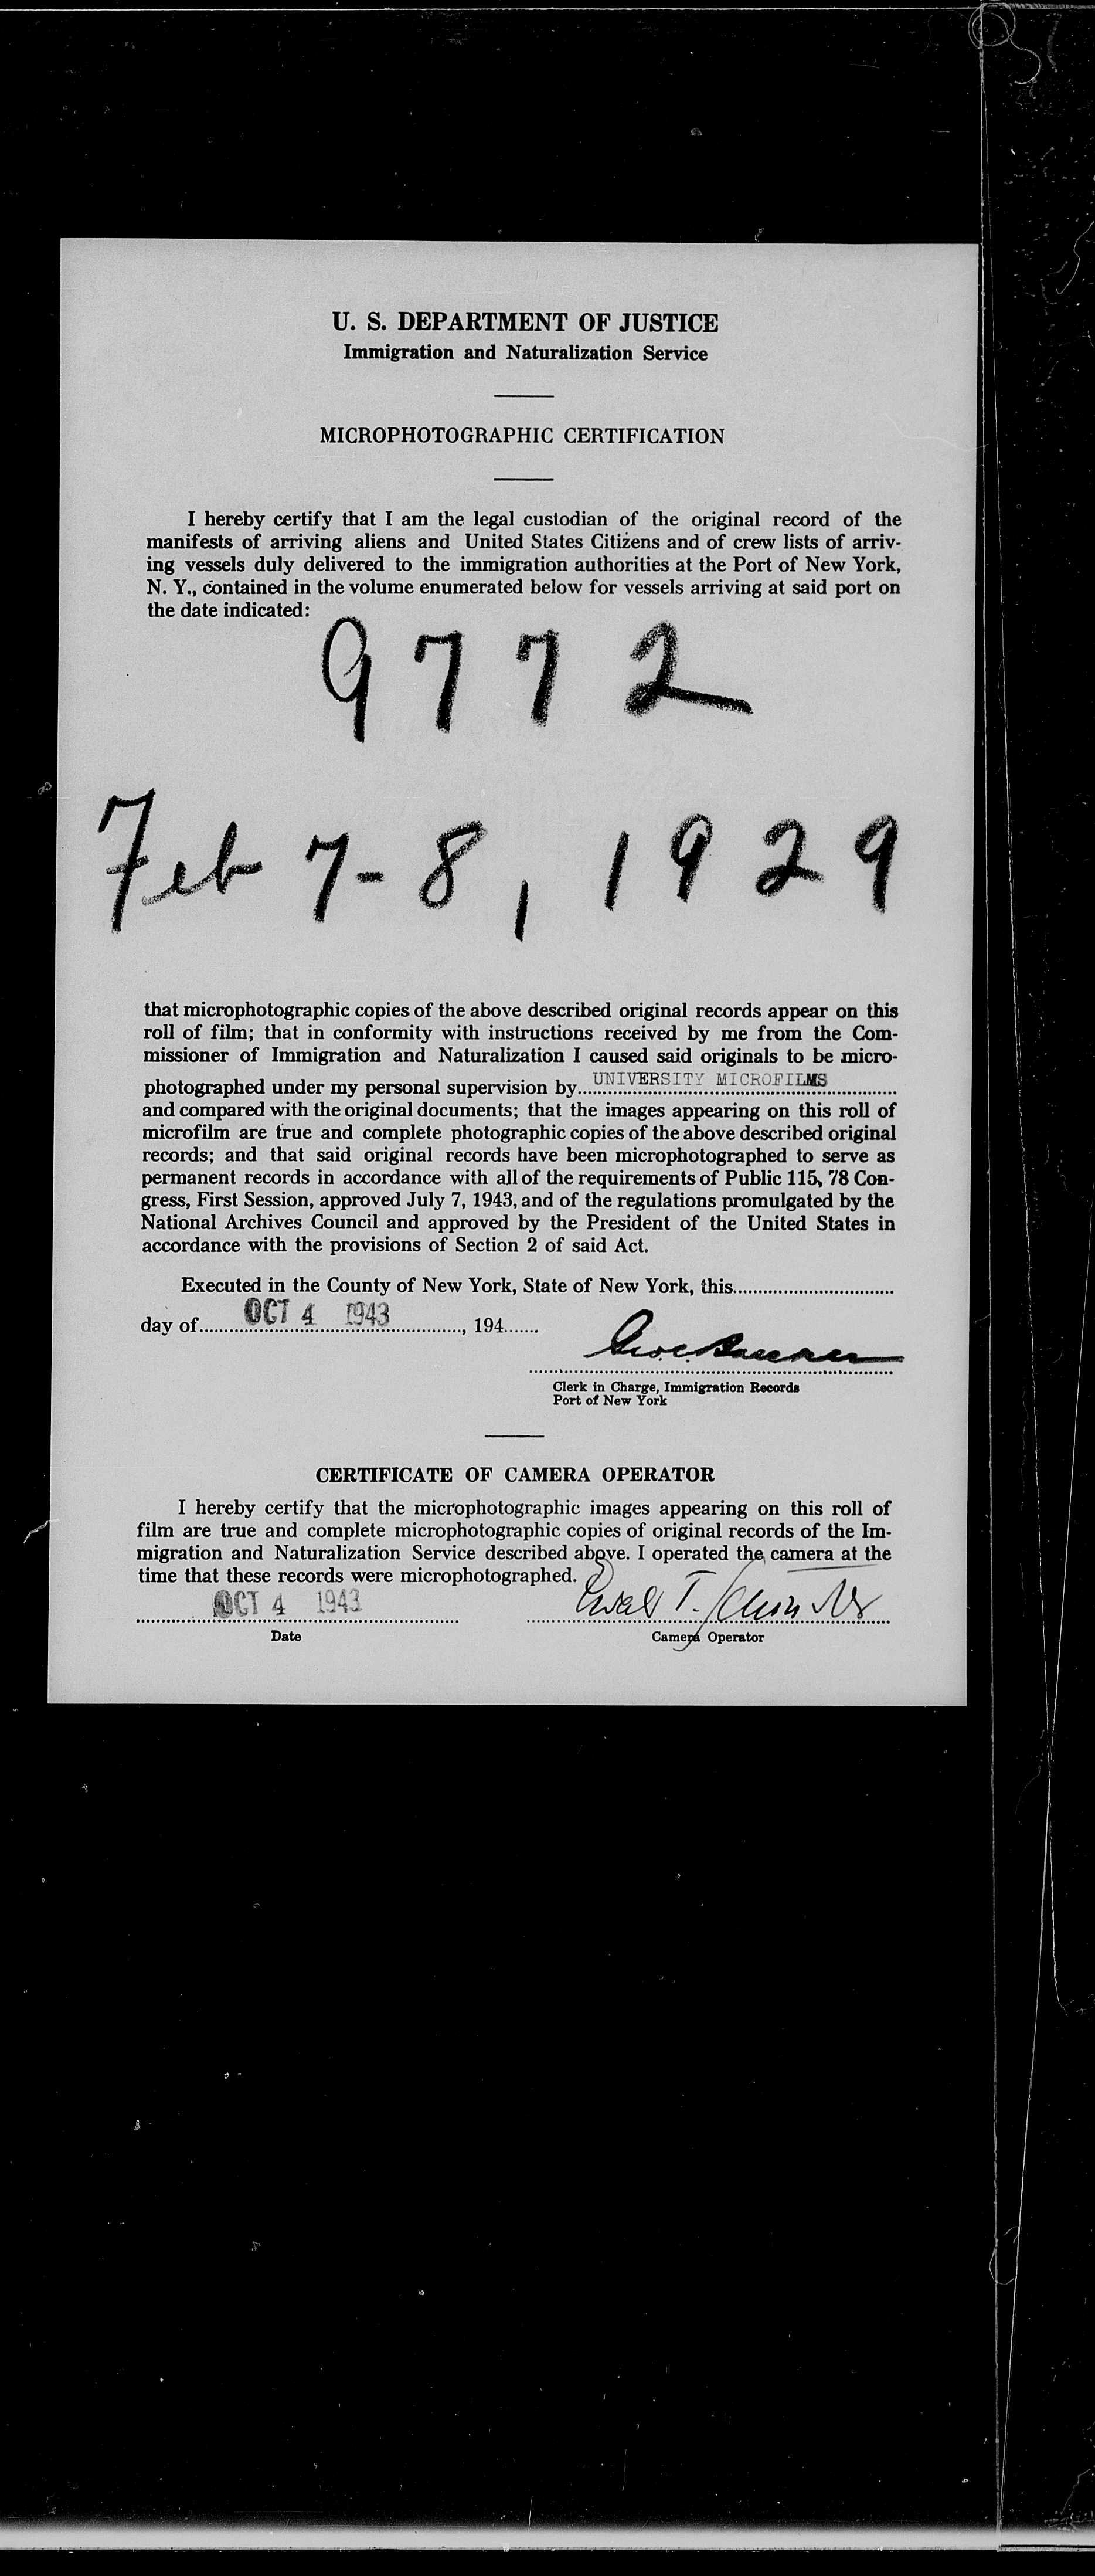 U. S. DEPARTMENT OF JUSTICE
Immigration and Naturalization Service
MICROPHOTOGRAPHIC CERTIFICATION
I hereby certify that I am the legal custodian of the original record of the
manifests of arriving aliens and United States Citizens and of crew lists of arriv-
ing vessels duly delivered to the immigration authorities at the Port of New York,
N. Y., contained in the volume enumerated below for vessels arriving at said port on
the date indicated:
9772
Feb 7-8, 1929
that microphotographic copies of the above described original records appear on this
roll of film; that in conformity with instructions received by me from the Com-
missioner of Immigration and Naturalization I caused said originals to be micro-
photographed under my personal supervision by UNIVERSITY MICROFILMS
and compared with the original documents; that the images appearing on this roll of
microfilm are true and complete photographic copies of the above described original
records; and that said original records have been microphotographed to serve as
permanent records in accordance with all of the requirements of Public 115, 78 Con-
gress, First Session, approved July 7, 1943, and of the regulations promulgated by the
National Archives Council and approved by the President of the United States in
accordance with the provisions of Section 2 of said Act.
Executed in the County of New York, State of New York, this
day of OCT 4 1943, 194
Clerk in Charge, Immigration Records
Port of New York
CERTIFICATE OF CAMERA OPERATOR
I hereby certify that the microphotographic images appearing on this roll of
film are true and complete microphotographic copies of original records of the Im-
migration and Naturalization Service described above. I operated the camera at the
time that these records were microphotographed.
OCT 4 1943
Date
Camera Operator